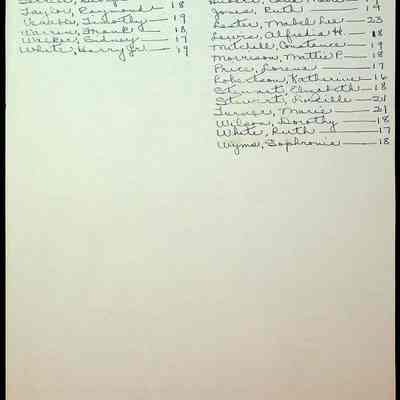 Taylor, Raymond — 18
Venable, Timothy — 19
Warren, Frank — 18
Weaker, Sidney — 17
White, Harry Jr. — 19
Jones, Ruth — 19
Lester, Mabel Lee — 23
Lewis, Alfredia H. — 18
Mitchell, Constance — 19
Morrison, Mattie P. — 18
Price, Lorena — 17
Robertson, Katherine — 16
Stewart, Elizabeth — 18
Stewart, Lucille — 21
Turner, Marie — 21
Wilson, Dorothy — 18
White, Ruth — 17
Wyms, Sophronia — 18